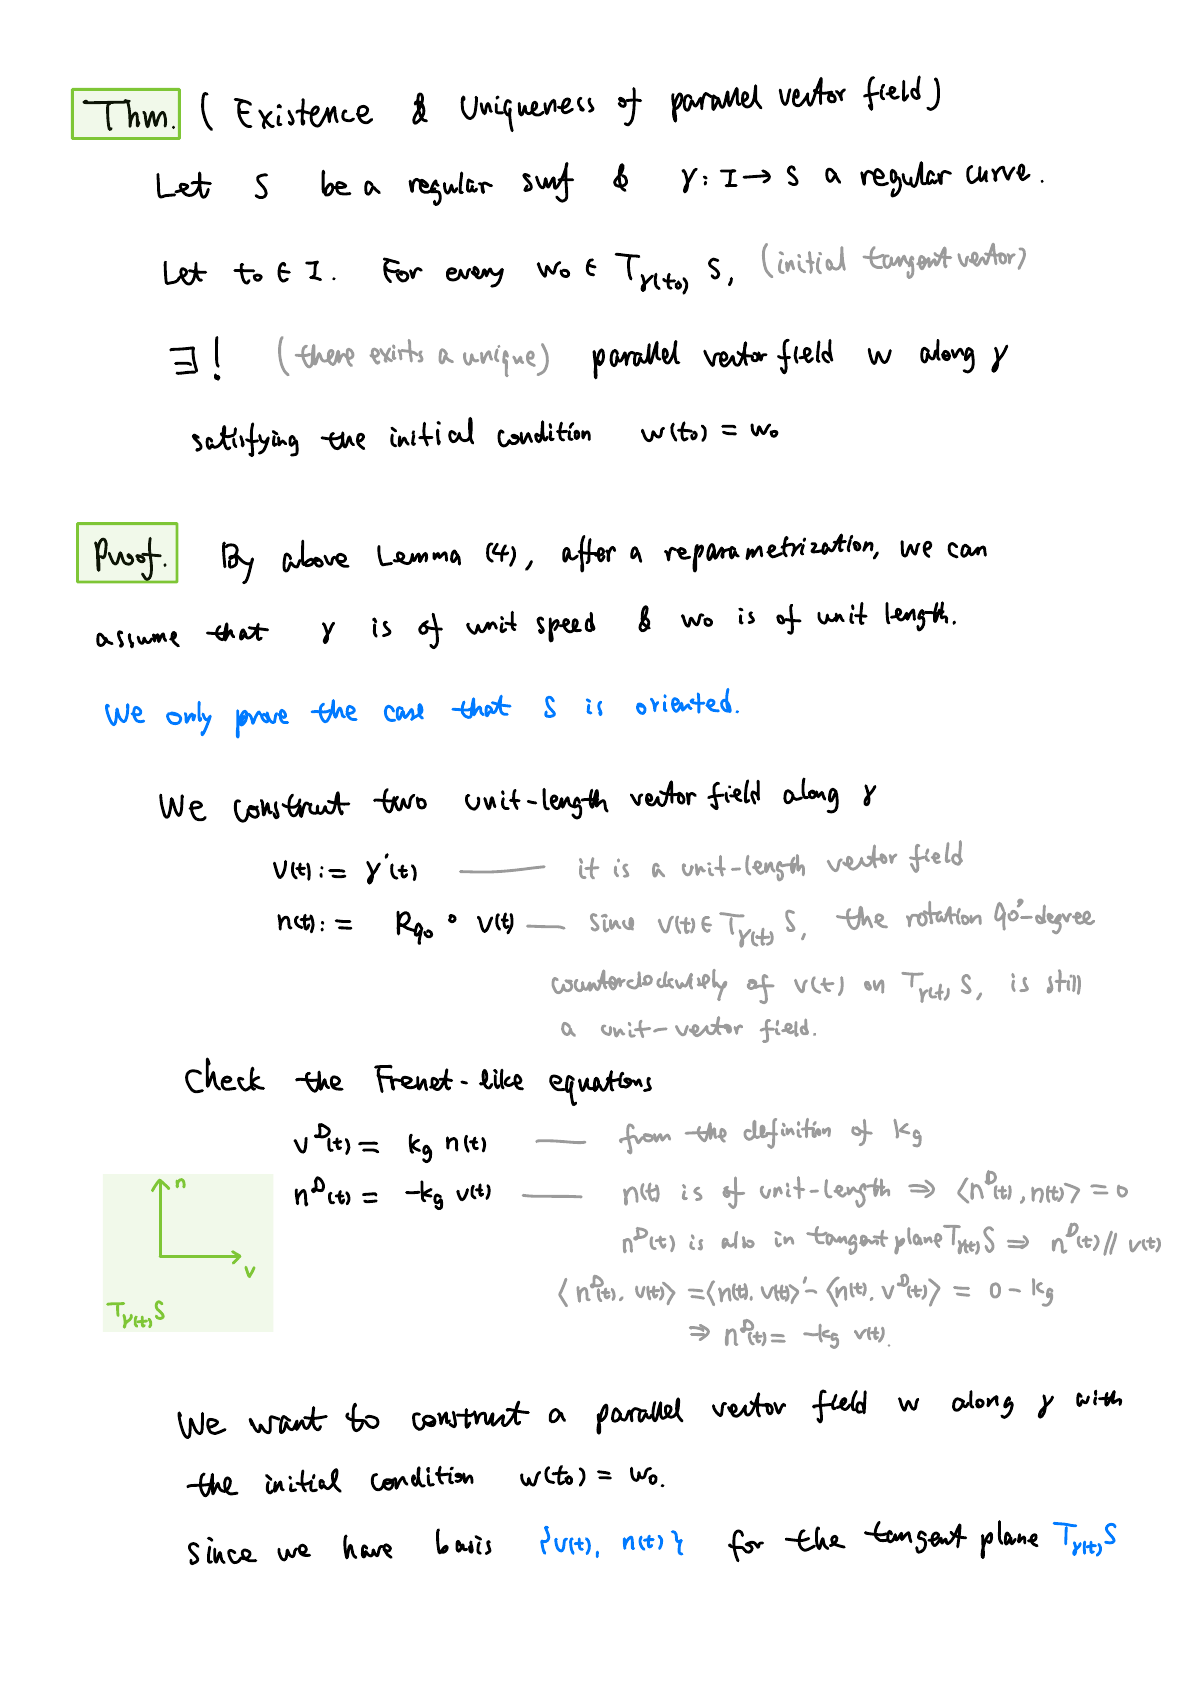 Thm. ( Existence & Uniqueness of parallel vector field )
Let S be a regular surf & γ: I → S a regular curve.
Let t₀ ∈ I. For every w₀ ∈ T_γ(t₀) S, (initial tangent vector)
∃! (there exists a unique) parallel vector field w along γ
satisfying the initial condition w(t₀) = w₀
Proof. By above Lemma (4), after a reparametrization, we can
assume that γ is of unit speed & w₀ is of unit length.
We only prove the case that S is oriented.
We construct two unit-length vector field along γ
v(t) := γ'(t) —— it is a unit-length vector field
n(t) := R₉₀ ∘ v(t) — since v(t) ∈ T_γ(t) S, the rotation 90°-degree
counterclockwisely of v(t) on T_γ(t) S, is still
a unit-vector field.
Check the Frenet-like equations
v^D(t) = kg n(t) —— from the definition of kg
n^D(t) = -kg v(t) —— n(t) is of unit-length ⇒ ⟨n^D(t), n(t)⟩ = 0
n
v
T_γ(t) S
n^D(t) is also in tangent plane T_γ(t) S ⇒ n^D(t) // v(t)
⟨n^D(t), v(t)⟩ = ⟨n(t), v(t)⟩' - ⟨n(t), v^D(t)⟩ = 0 - kg
⇒ n^D(t) = -kg v(t).
We want to construct a parallel vector field w along γ with
the initial condition w(t₀) = w₀.
Since we have basis {v(t), n(t)} for the tangent plane T_γ(t) S